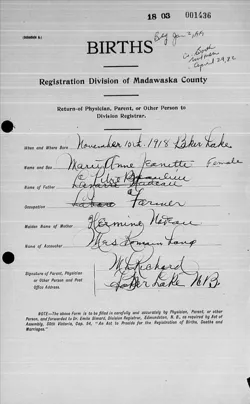 18 03 001436
BIRTHS
Registration Division of Madawaska County
Return of Physician, Parent, or Other Person to
Division Registrar.
When and Where Born November 10th 1918 Baker Lake
Name and Sex Marie Anne Jeanette Female
Name of Father Nadeau
Occupation Farmer
Maiden Name of Mother Hermine Nadeau
Name of Accoucher Mrs Romain Lang
Signature of Parent, Physician
or Other Person and Post
Office Address.
Richard
Baker Lake N.B.
NOTE:—The above Form is to be filled in carefully and accurately by Physician, Parent, or other
Person, and forwarded to Dr. Emile Simard, Division Registrar, Edmundston, N. B., as required by Act of
Assembly, 50th Victoria, Cap. 5th, "An Act to Provide for the Registration of Births, Deaths and
Marriages."